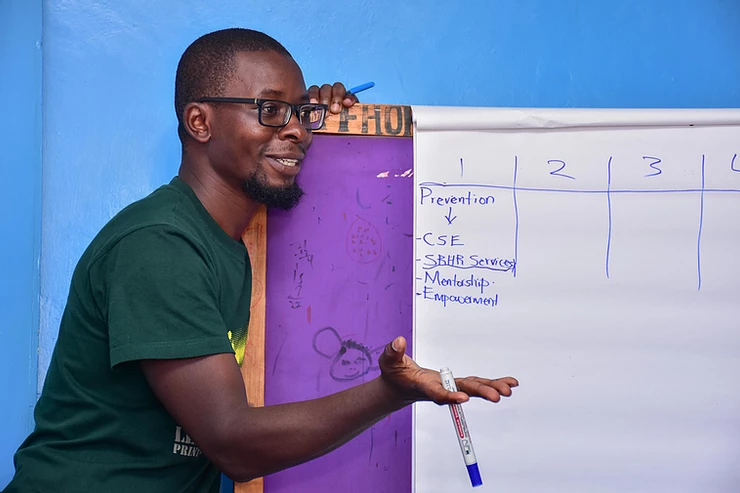 PHO
1 2 3 4
Prevention
↓
- CSE
- SRHR Services
- Mentorship.
- Empowerment
PRINT